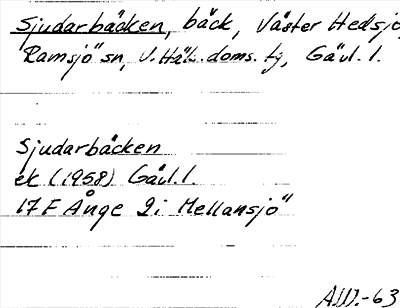 Sjudarbäcken, bäck, Väster Hedsjö,
Ramsjö sn, V. Häls. doms. tg, Gävl. l.
Sjudarbäcken
ek (1958) Gävl. l.
17 F Ånge 2 i Mellansjö"
A.W.-63